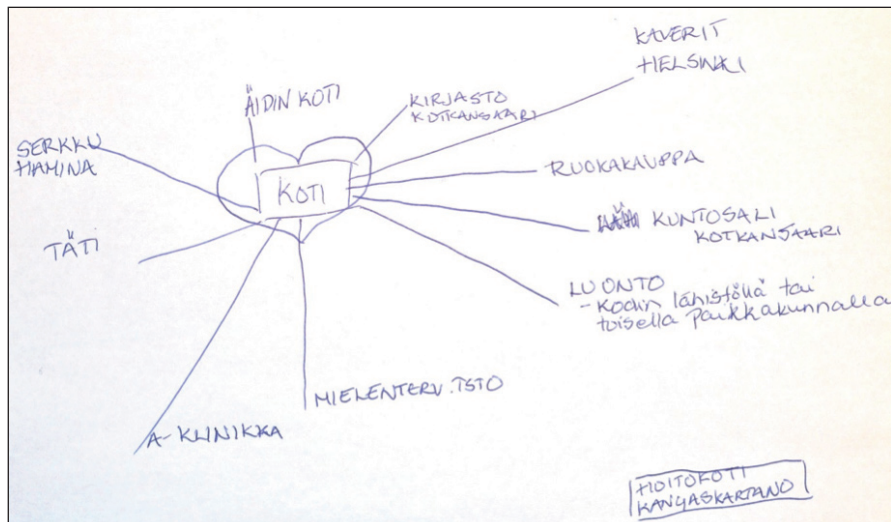 KAVERIT
HELSINKI
ÄIDIN KOTI
KIRJASTO
KOTKANSAARI
SERKKU
HAMINA
RUOKAKAUPPA
KOTI
KUNTOSALI
KOTKANSAARI
TÄTI
LUONTO
- Kodin lähistöllä tai
toisella paikkakunnalla
MIELENTERV.TSTO
A-KLINIKKA
HOITOKOTI
KANGASKARTANO